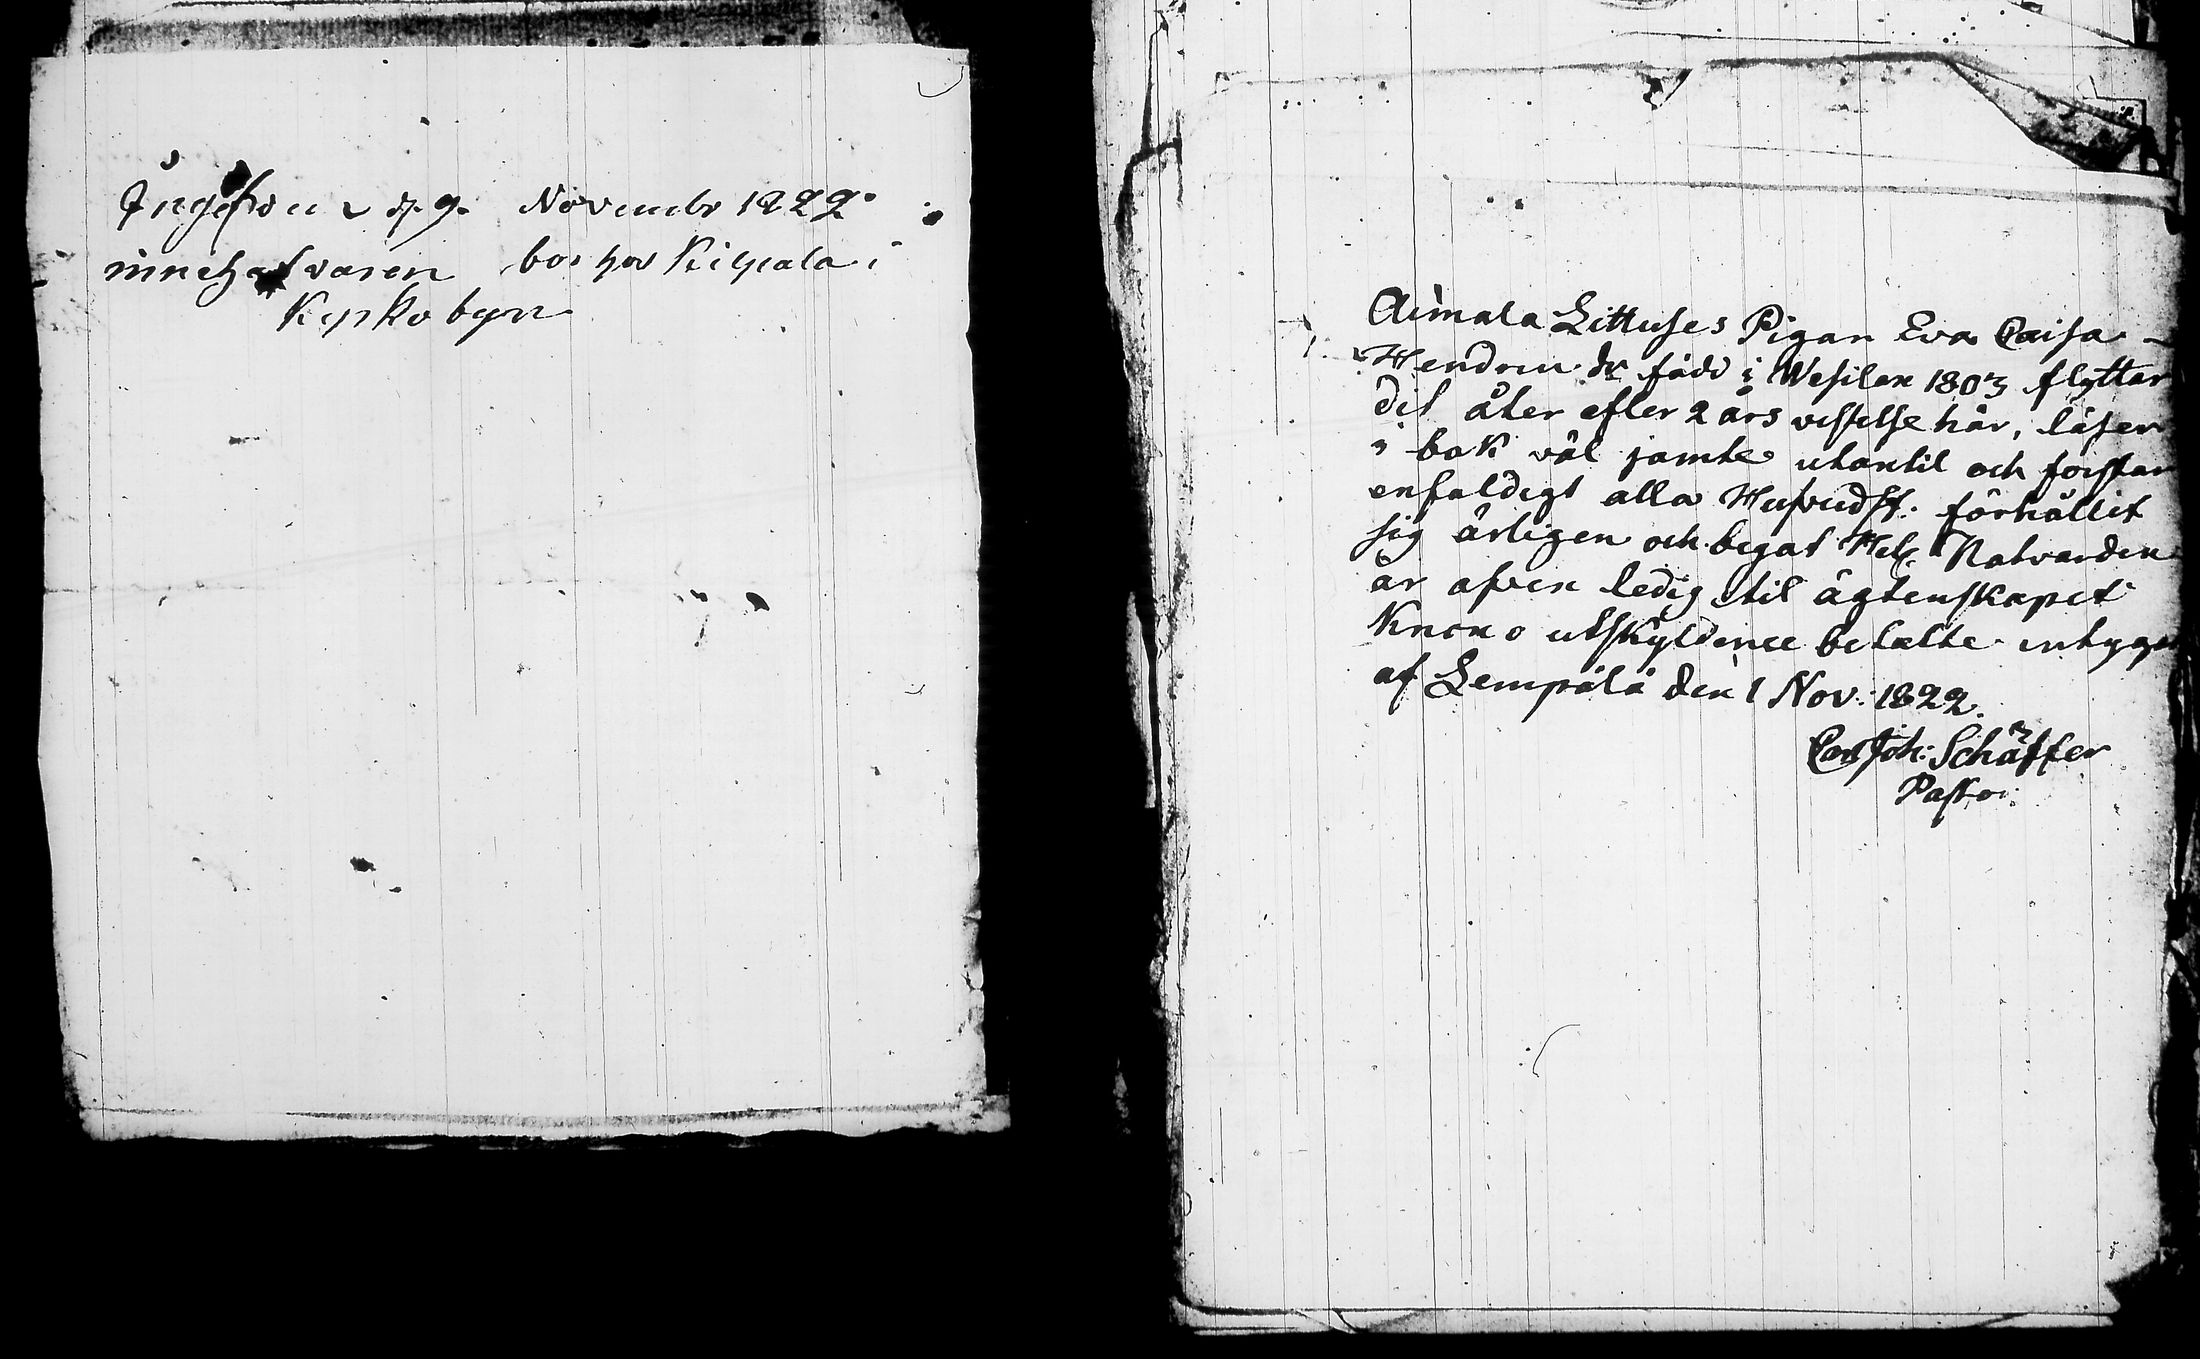 Ingifven d. 9. Novembr 1822.
innehafvaren bor hos Kilpala i
Kypko byn
Aimala Littuses Pigan Eva Caisa
Hendrics dr född i Wesilax 1803 flyttar
dit åter efter 2 års vistelse här, läser
i bok väl jämte utantil och förstår
enfaldigt alla Hufvudst. förhållit
sig ärligen och begåt Hel. Natvarden
är äfven ledig til ägtenskapet
Krono utskylderne betalte intygar
af Lempälä den 1 Nov. 1822.
Carl Joh: Schäffer
Pastor.